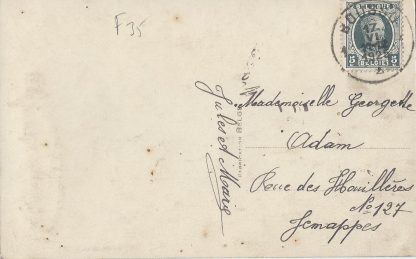 F35
BOUSSU
5 BELGIË 5
Jules et Marie
Mademoiselle Georgette
Adam
Rue des Houillères
No 127
Jemappes